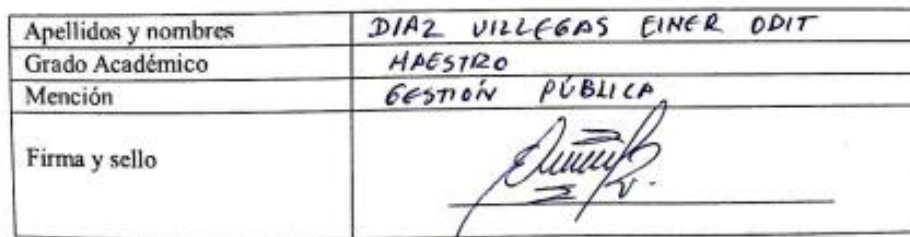 Apellidos y nombres DIAZ VILLEGAS EINER ODIT
Grado Académico MAESTRO
Mención GESTIÓN PÚBLICA
Firma y sello